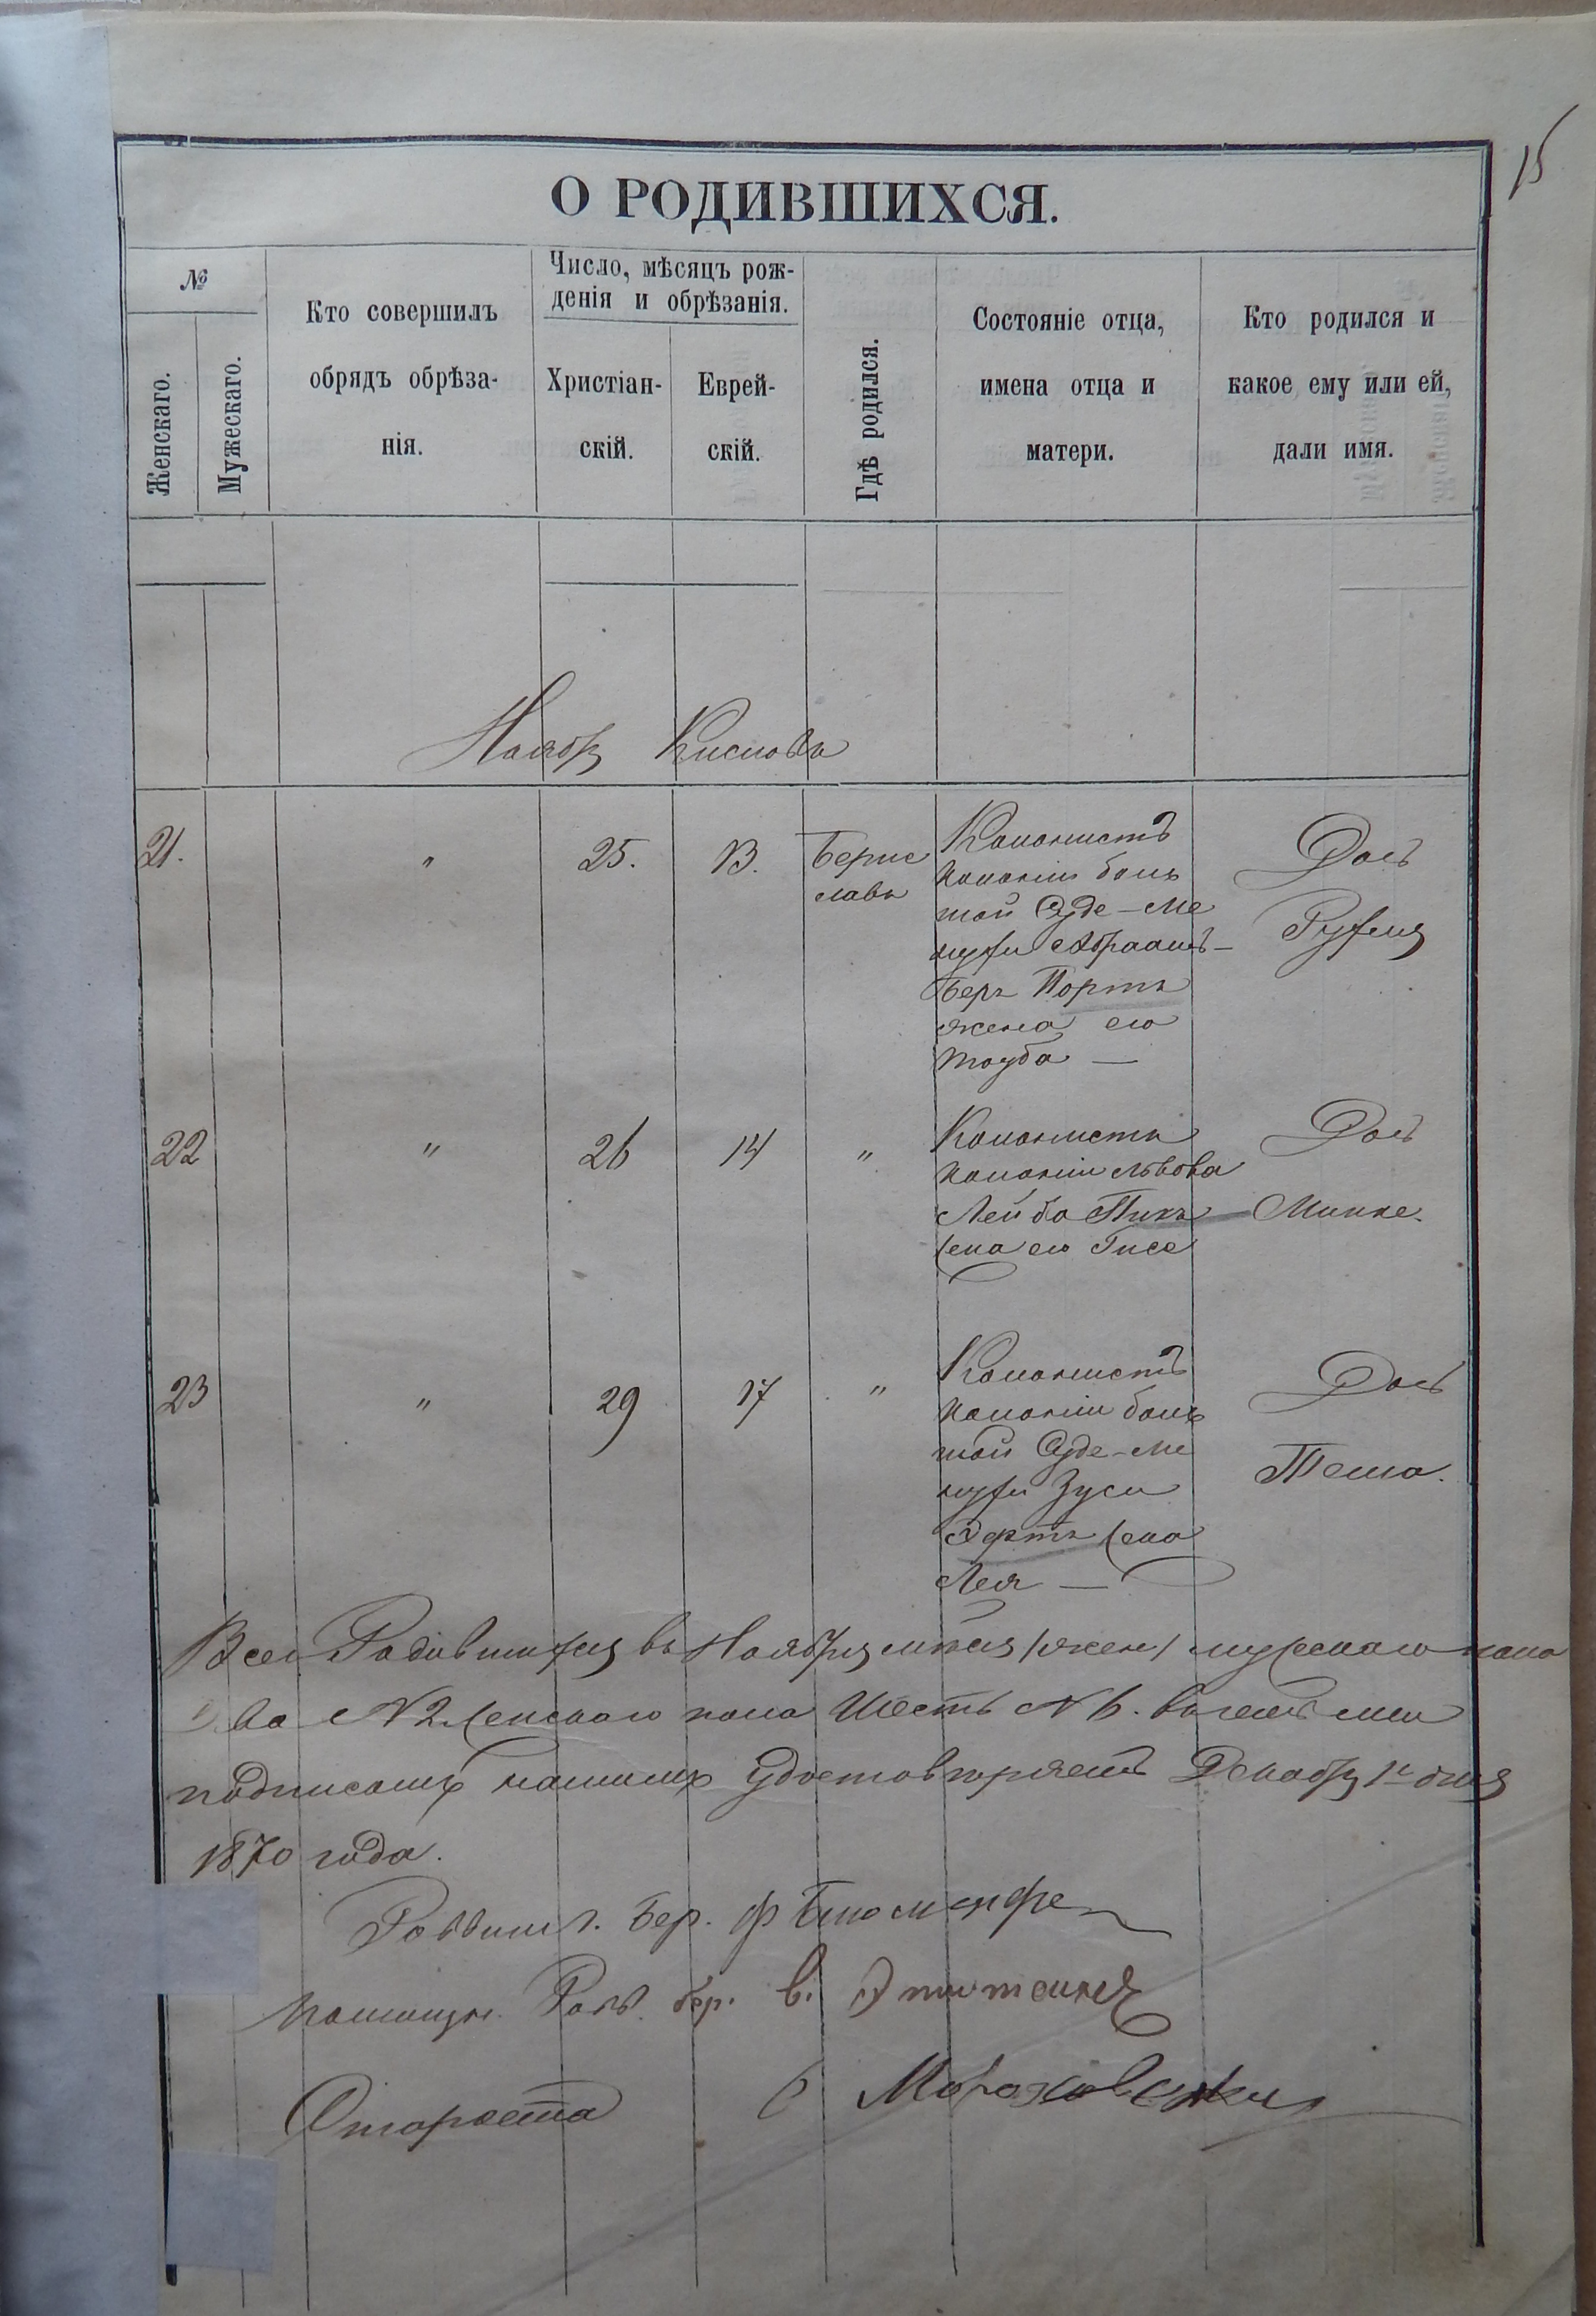 15
О РОДИВШИХСЯ.
№
Женскаго.
Мужескаго.
Кто совершилъ
обрядъ обрѣза-
нія.
Число, мѣсяцъ рож-
денія и обрѣзанія.
Христіан-
скій.
Еврей-
скій.
Гдѣ родился.
Состояніе отца,
имена отца и
матери.
Кто родился и
какое ему или ей,
дали имя.
Ноябрь Кислова
21. " 25. 13. Берис
славъ
Колонистъ
колоніи боль
шой Суде-Ме
нухи Абраамъ-
Беръ Портъ
жена его
Тауба —
Дочь
Рухля
22 " 26 14 "
Колонистъ
колоніи Львова
Лейба Пикъ
жена его Гисе
Дочь
Минке.
23 " 29 17 "
Колонистъ
колоніи боль
шой Суде-Ме
нухи Зуси
жена
Лея —
Дочь
Тема.
Всего Родившихся въ Ноябрѣ мѣсяцѣ мужескаго пола
два № 2 женскаго пола Шесть № 6.
подписомъ нашимъ удостовѣряемъ Декабря 1го дня
1870 года.
Раввинъ г. Бер.
Помощн. Равв. бер. В.
Староста